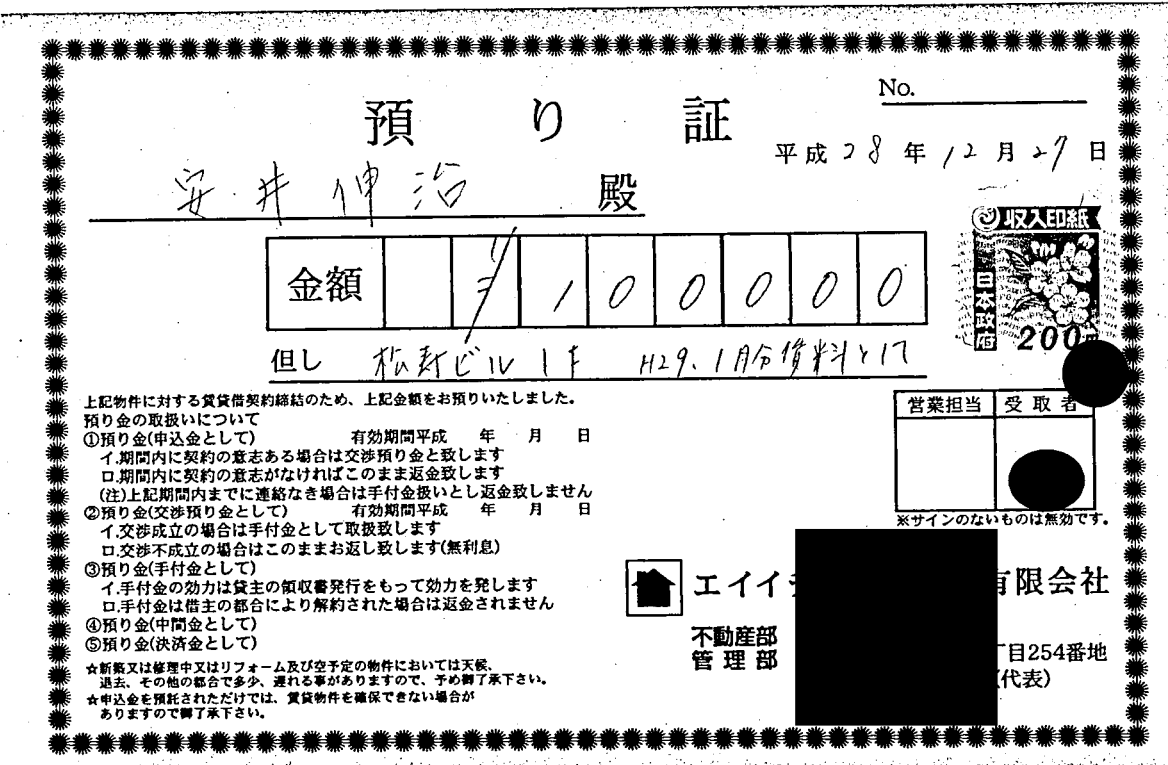 No.
預り証
平成28年12月27日
安井伸治 殿
収入印紙
日本政府
200円
金額 1 0 0 0 0 0
但し 松寿ビル1F H29.1月分賃料として
上記物件に対する賃貸借契約締結のため、上記金額をお預りいたしました。
預り金の取扱いについて
①預り金(申込金として) 有効期間平成 年 月 日
イ.期間内に契約の意志ある場合は交渉預り金と致します
ロ.期間内に契約の意志がなければこのまま返金致します
(注)上記期間内までに連絡なき場合は手付金扱いとし返金致しません
②預り金(交渉預り金として) 有効期間平成 年 月 日
イ.交渉成立の場合は手付金として取扱致します
ロ.交渉不成立の場合はこのままお返し致します(無利息)
③預り金(手付金として)
イ.手付金の効力は貸主の領収書発行をもって効力を発します
ロ.手付金は借主の都合により解約された場合は返金されません
④預り金(中間金として)
⑤預り金(決済金として)
☆新築又は修理中又はリフォーム及び空予定の物件においては天候、
退去、その他の都合で多少、遅れる事がありますので、予め御了承下さい。
☆申込金を預託されただけでは、賃貸物件を確保できない場合が
ありますので御了承下さい。
営業担当 受取者
※サインのないものは無効です。
エイイ 有限会社
不動産部
管理部
丁目254番地
(代表)